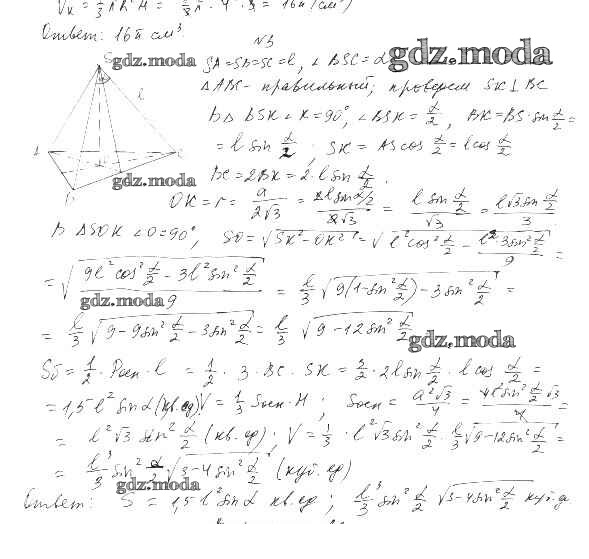 Vк = 1/3 πR²H = 16π (см³)
Ответ: 16π см³.
N3
S gdz.moda SA=SB=SC=l, ∠BSC=α gdz.moda
ΔABC - правильный; проведем SK⊥BC
l В Δ BSK ∠K=90°, ∠BSK = α/2, BK=BS·sin α/2 =
A C = l sin α/2; SK = AS cos α/2 = l cos α/2
gdz.moda BC = 2BK = 2·l sin α/2.
B OK = r = a/2√3 = 2l sin α/2 / 2√3 = l sin α/2 / √3 = l√3 sin α/2 / 3
В ΔSOK ∠O=90°, SO = √SK²-OK² = √l²cos² α/2 - l²·3sin² α/2 / 9 =
= √9l²cos² α/2 - 3l²sin² α/2 / 9 = l/3 √9(1-sin² α/2) - 3sin² α/2 =
gdz.moda
= l/3 √9-9sin² α/2 - 3sin² α/2 = l/3 √9-12sin² α/2
gdz.moda
Sб = 1/2·Pосн·l = 1/2·3·BC·SK = 3/2·2l sin α/2·l cos α/2 =
= 1,5l² sin α (кв.ед) V = 1/3 Sосн·H; Sосн = a²√3/4 = 4l²sin² α/2 √3 / 4 =
= l²√3 sin² α/2 (кв.ед); V = 1/3·l²√3 sin² α/2·l/3 √9-12sin² α/2 =
= l³/3 sin² α/2 √3-4sin² α/2 (куб.ед)
gdz.moda
Ответ: S = 1,5l² sin α кв.ед; l³/3 sin² α/2 √3-4sin² α/2 куб.д